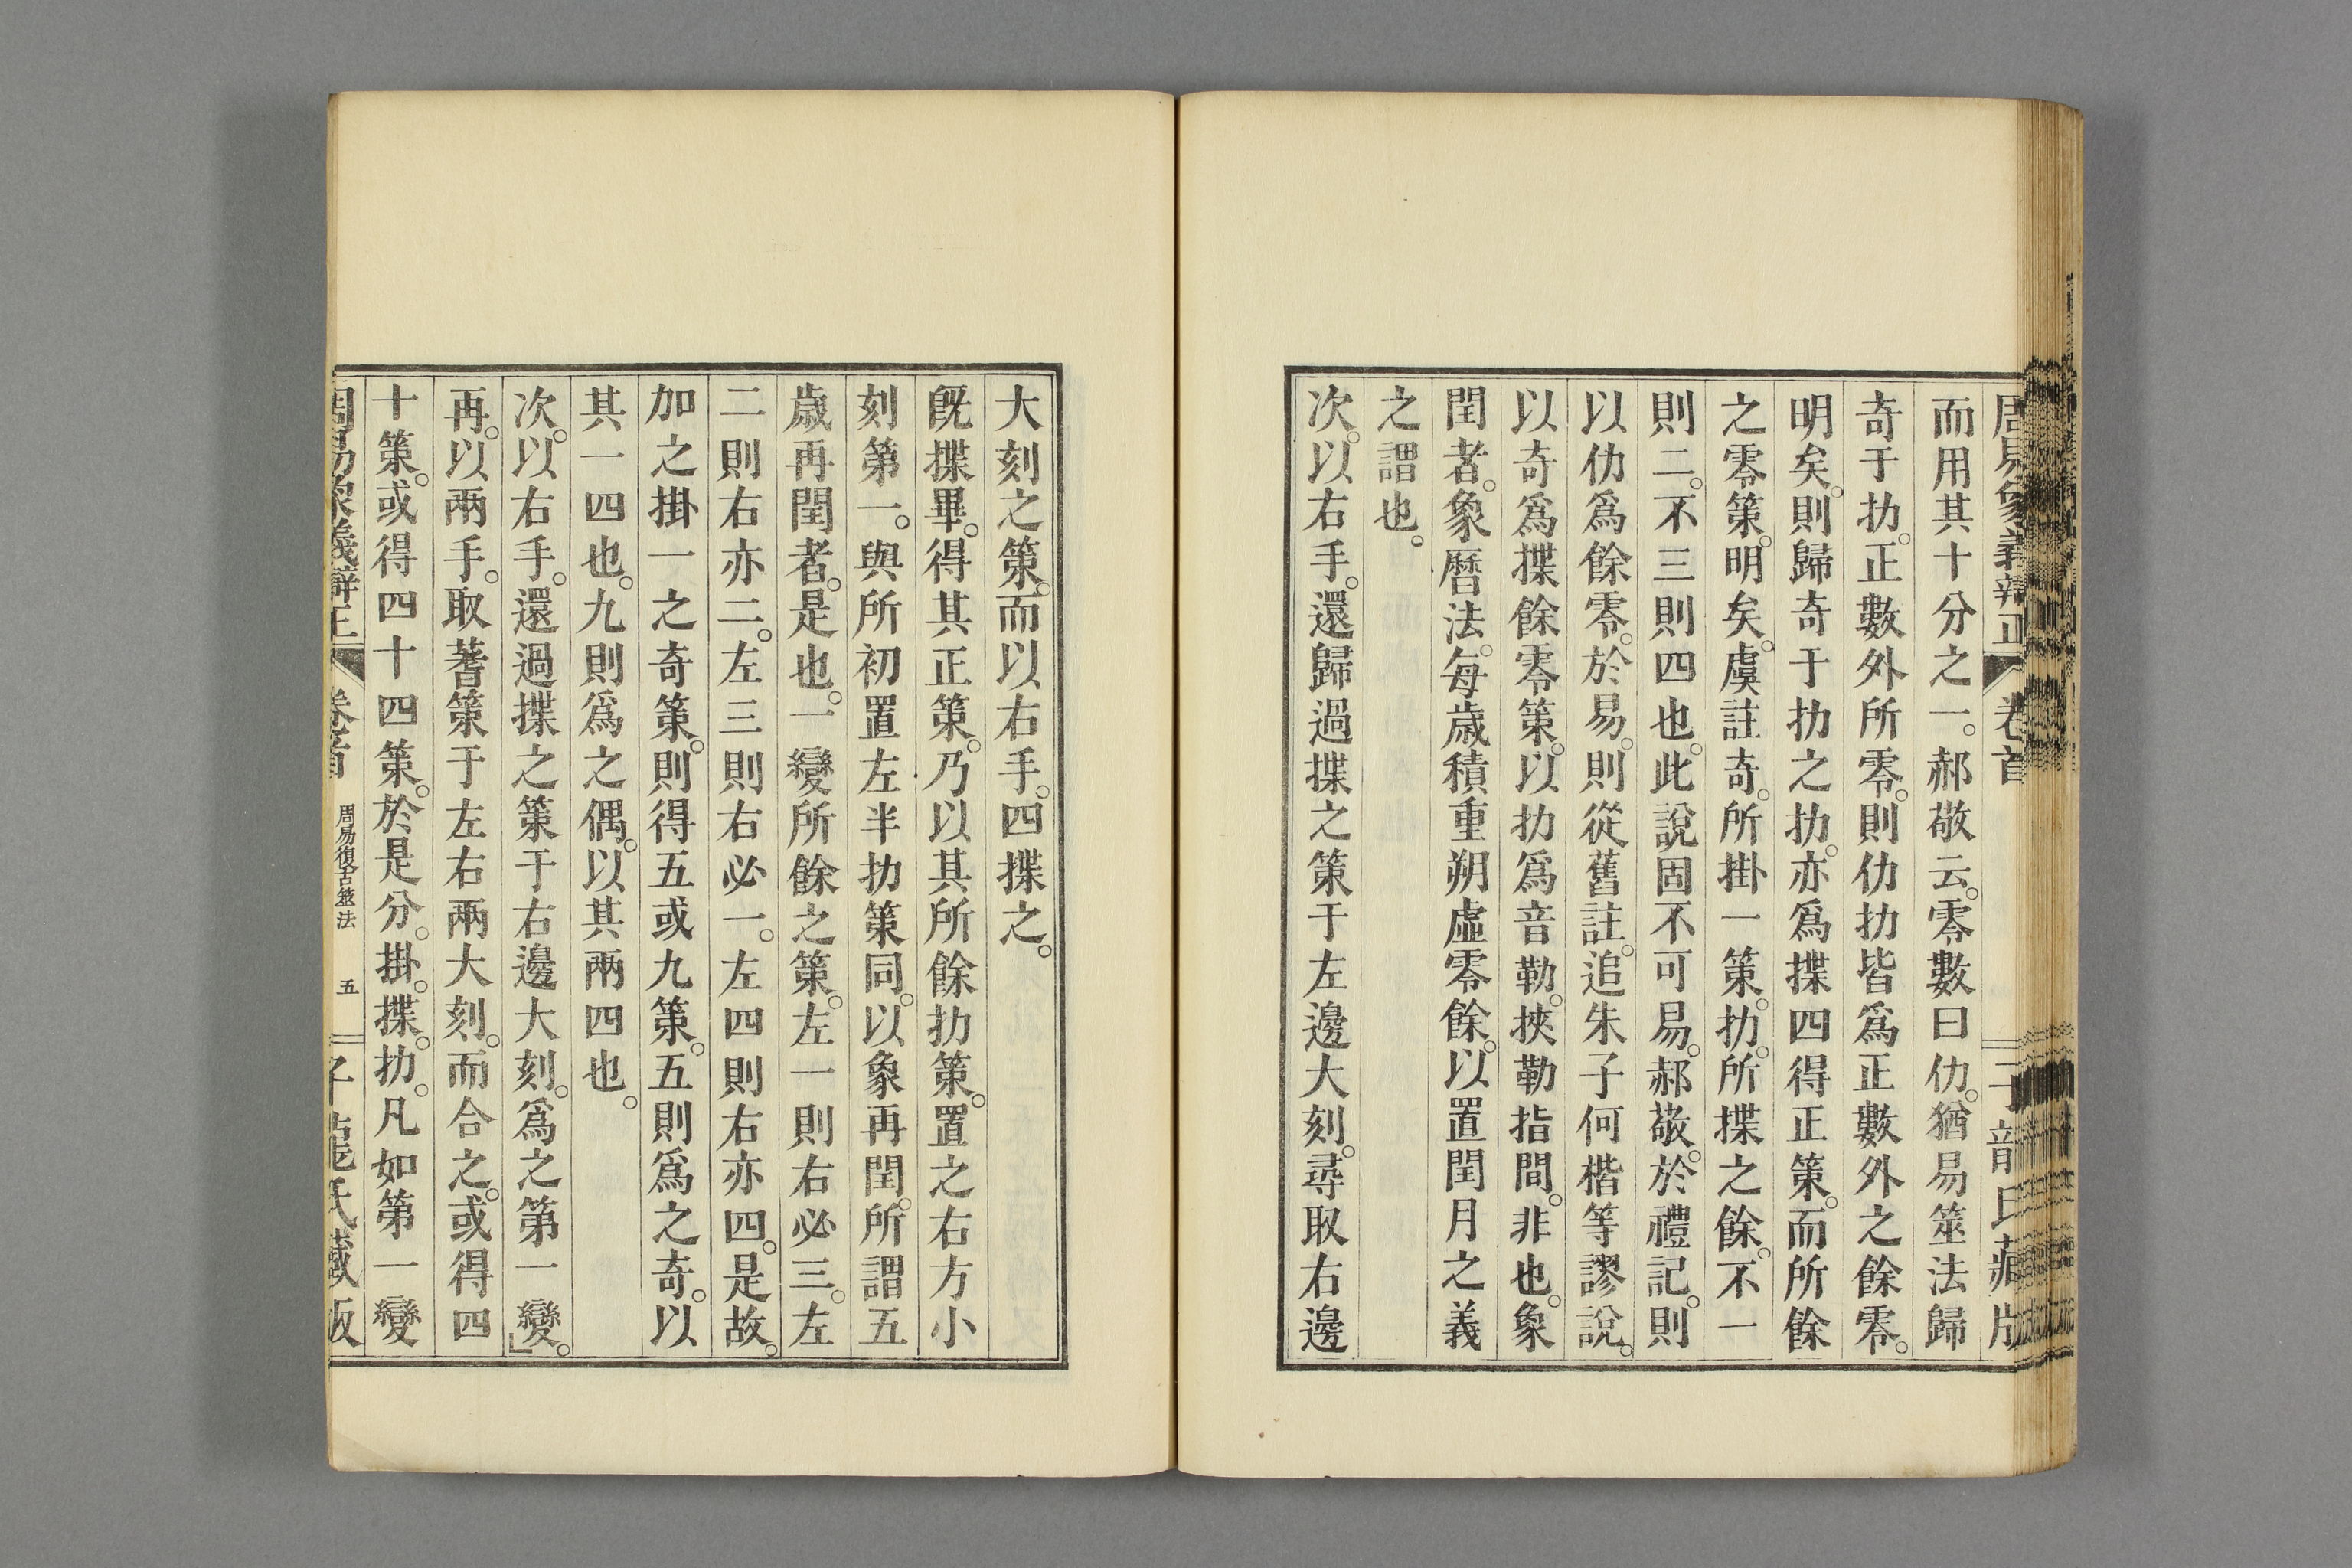 周易象義辯正 卷首 子龍氏藏版
而用其十分之一。郝敬云。零數曰仂。猶易筮法歸
奇于扐。正數外所零。則仂扐皆爲正數外之餘零。
明矣。則歸奇于扐之扐。亦爲揲四得正策。而所餘
之零策。明矣。虞註奇。所掛一策。扐。所揲之餘。不一
則二。不三則四也。此說固不可易。郝敬。於禮記。則
以仂爲餘零。於易。則從舊註。追朱子何楷等謬說。
以奇爲揲餘零策。以扐爲音勒。挾勒指間。非也。象
閏者。象曆法。每歲積重朔虛零餘。以置閏月之義
之謂也。
次。以右手。還歸過揲之策于左邊大刻。尋取右邊
大刻之策。而以右手。四揲之。
旣揲畢。得其正策。乃以其所餘扐策。置之右方小
刻第一。與所初置左半扐策同。以象再閏。所謂五
歲再閏者。是也。一變所餘之策。左一則右必三。左
二則右亦二。左三則右必一。左四則右亦四。是故。
加之掛一之奇策。則得五或九策。五則爲之奇。以
其一四也。九則爲之偶。以其兩四也。
次。以右手。還過揲之策于右邊大刻。爲之第一變。」
再。以兩手。取蓍策于左右兩大刻。而合之。或得四
十策。或得四十四策。於是分。掛。揲。扐。凡如第一變
周易象義辯正 卷首 周易復古筮法 五 子龍氏藏版